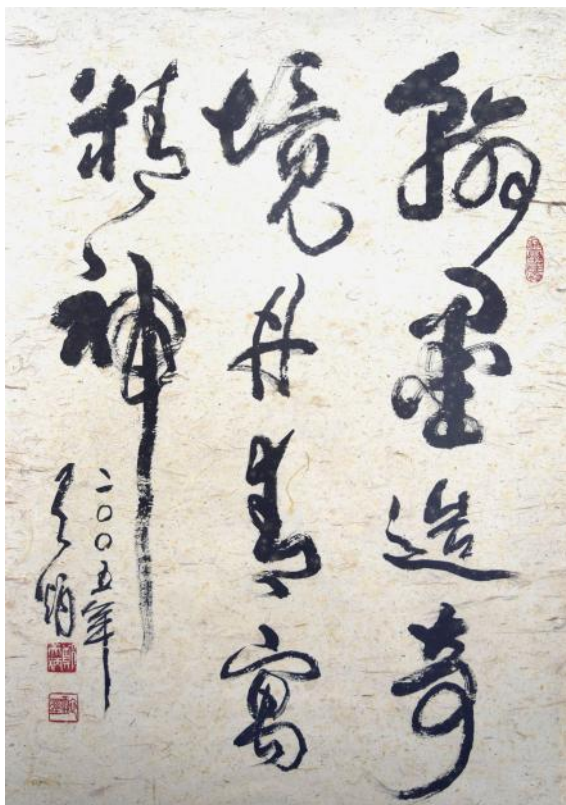 翰墨造奇
境丹青寓
精神
二〇〇五年